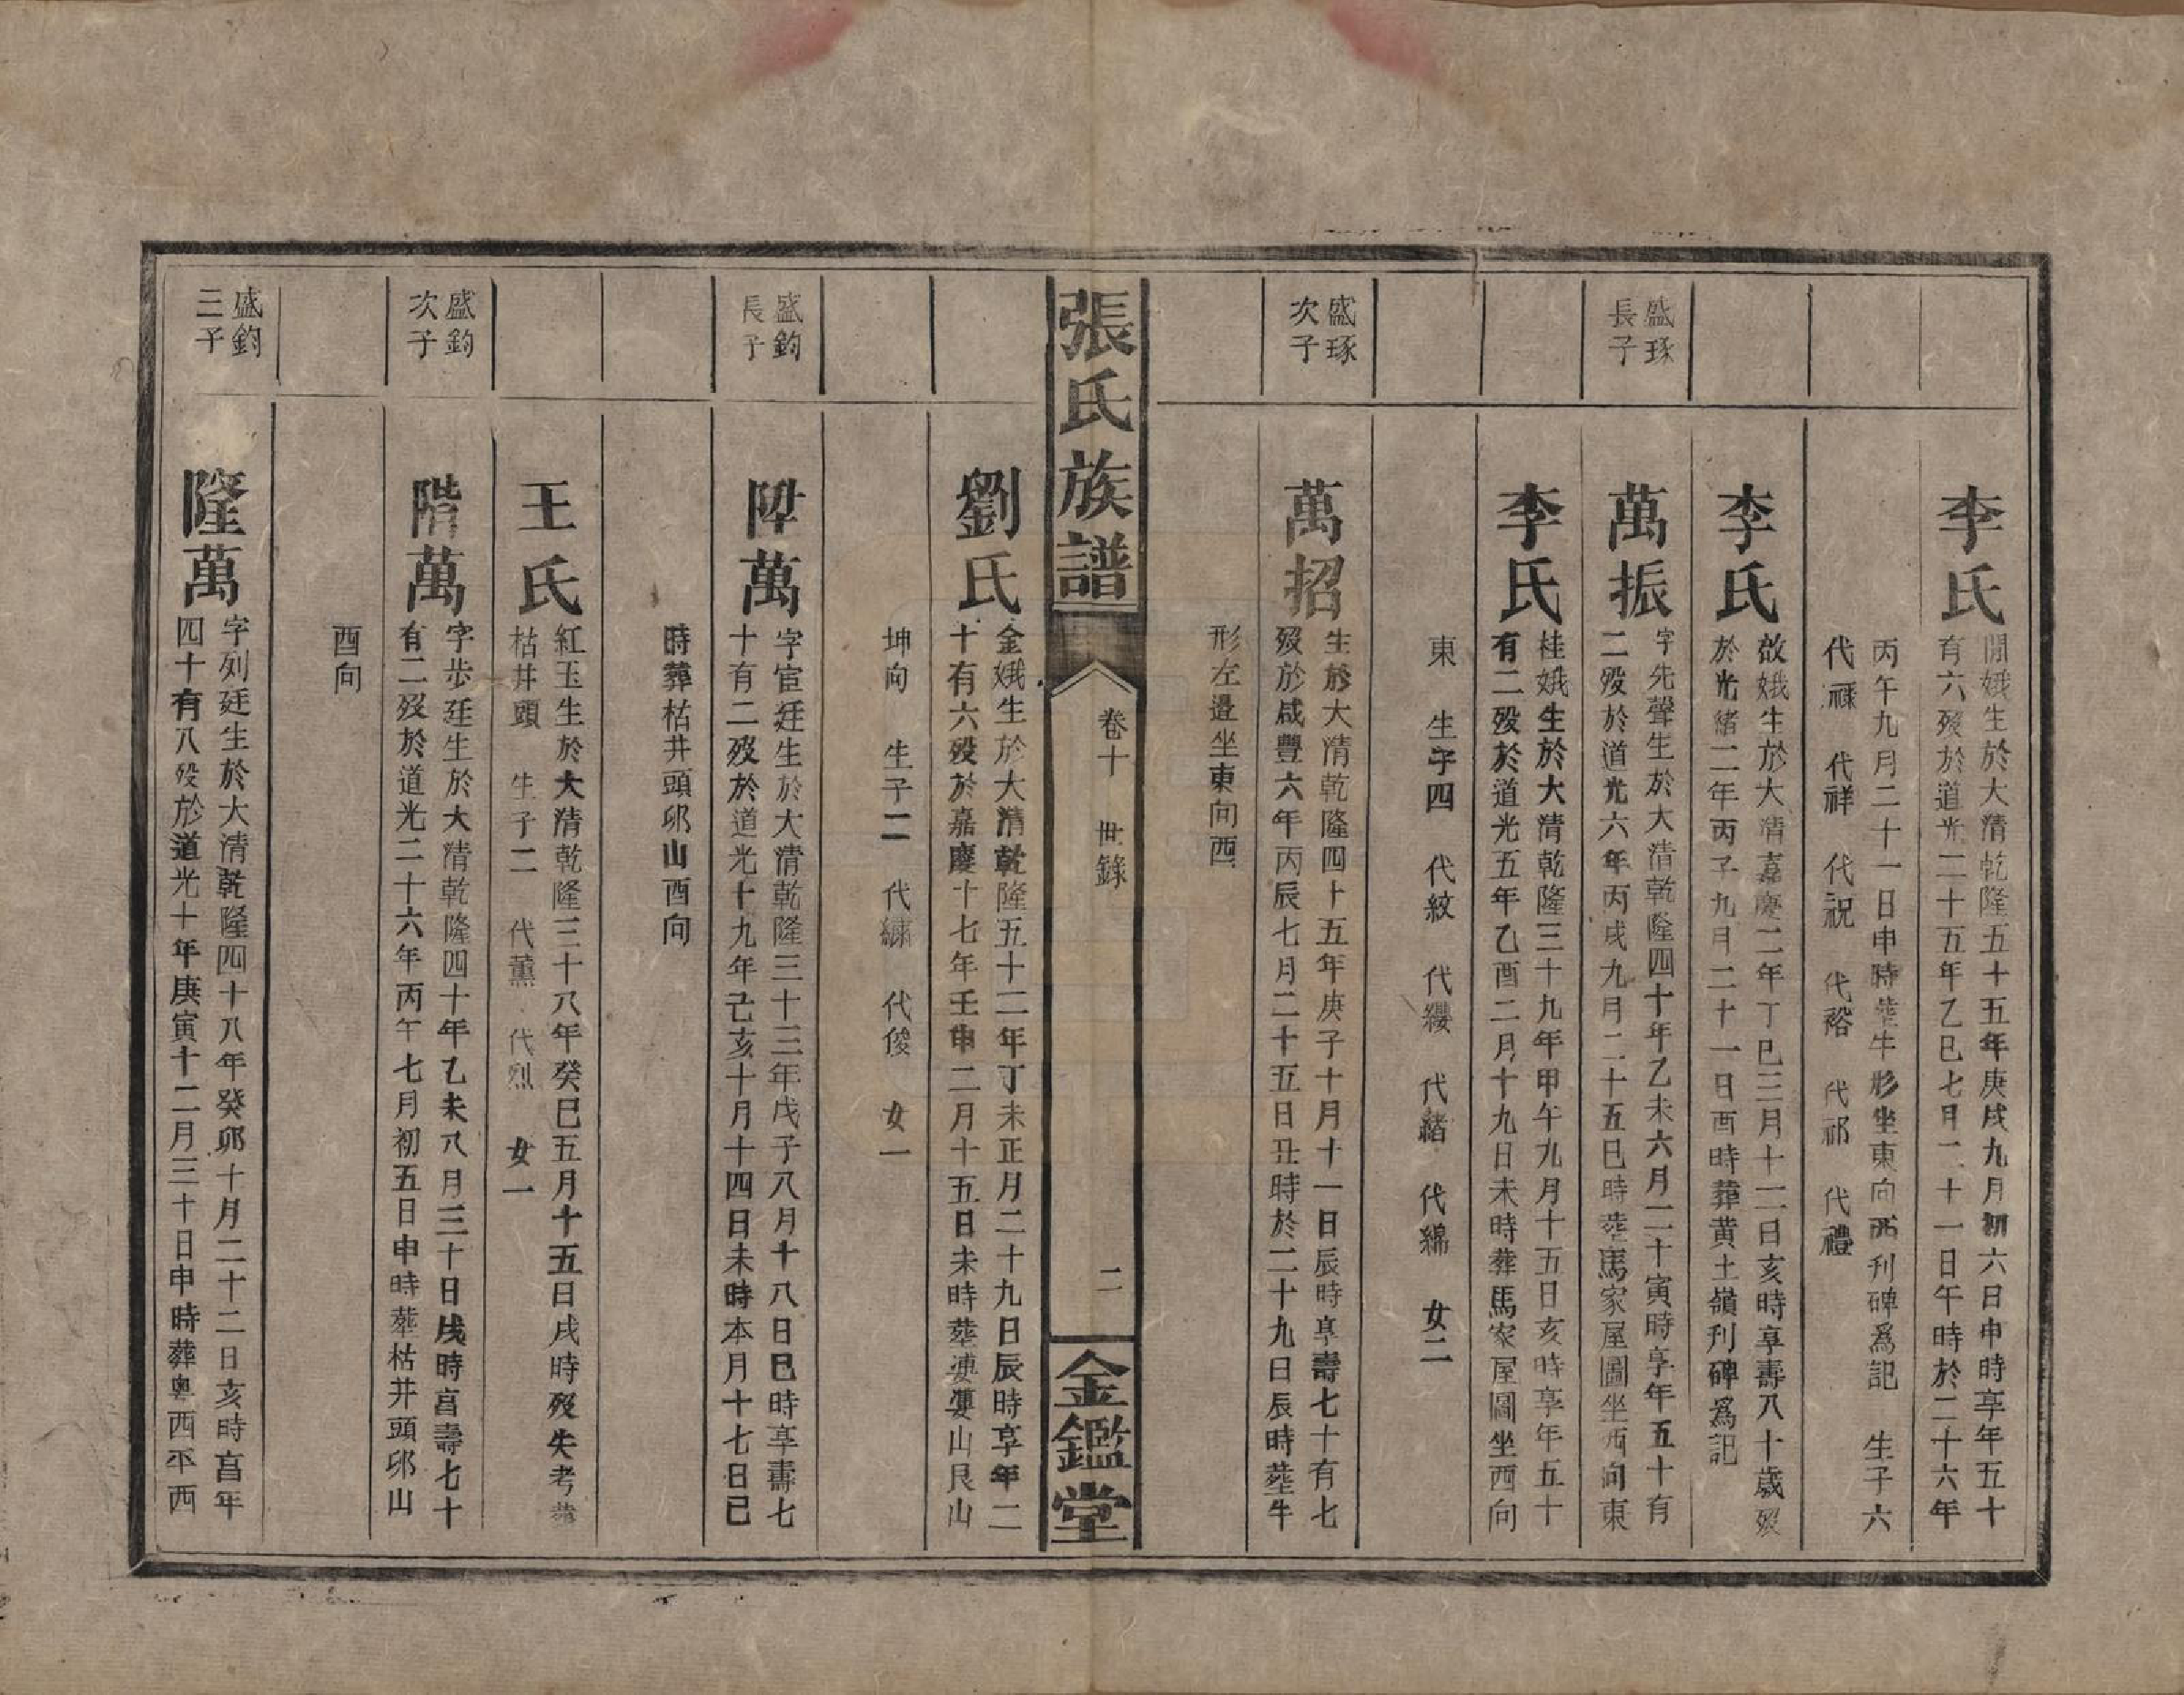 李氏
閒娥生於大清乾隆五十五年庚戌九月初六日申時享年五十
有六歿於道光二十五年乙巳七月二十一日午時於二十六年
丙午九月二十一日申時塟牛形坐東向西刋碑爲記 生子六
代祿 代祥 代祝 代裕 代祁 代禮
李氏
啟娥生於大清嘉慶二年丁巳三月十二日亥時享壽八十歲歿
於光緒二年丙子九月二十一日酉時葬黃土嶺刋碑爲記
盛琢
長子
萬振
字先聲生於大清乾隆四十年乙未六月二十寅時享年五十有
二歿於道光六年丙戌九月二十五巳時塟馬家屋圖坐西向東
李氏
桂娥生於大清乾隆三十九年甲午九月十五日亥時享年五十
有二歿於道光五年乙酉二月十九日未時葬馬家屋圖坐西向
東 生子四 代紋 代纓 代緒 代綿 女二
盛琢
次子
萬招
生於大清乾隆四十五年庚子十月十一日辰時享壽七十有七
歿於咸豐六年丙辰七月二十五日丑時於二十九日辰時塟牛
形左邉坐東向西
張氏族譜
卷十 世錄
二
金鑑堂
劉氏
金娥生於大清乾隆五十二年丁未正月二十九日辰時享年二
十有六歿於嘉慶十七年壬申二月十五日未時塟婆婆山艮山
坤向 生子二 代繡 代俊 女一
盛鈞
長子
陞萬
字宦廷生於大清乾隆三十三年戊子八月十八日巳時享壽七
十有二歿於道光十九年己亥十月十四日未時本月十七日巳
時葬枯井頭卯山酉向
王氏
紅玉生於大清乾隆三十八年癸巳五月十五日戌時歿失考葬
枯井頭 生子二 代薫 代烈 女一
盛鈞
次子
階萬
字步廷生於大清乾隆四十年乙未八月三十日戌時亯壽七十
有二歿於道光二十六年丙午七月初五日申時塟枯井頭卯山
酉向
盛鈞
三子
隆萬
字列廷生於大清乾隆四十八年癸卯十月二十二日亥時亯年
四十有八歿於道光十年庚寅十二月三十日申時葬粵西平西